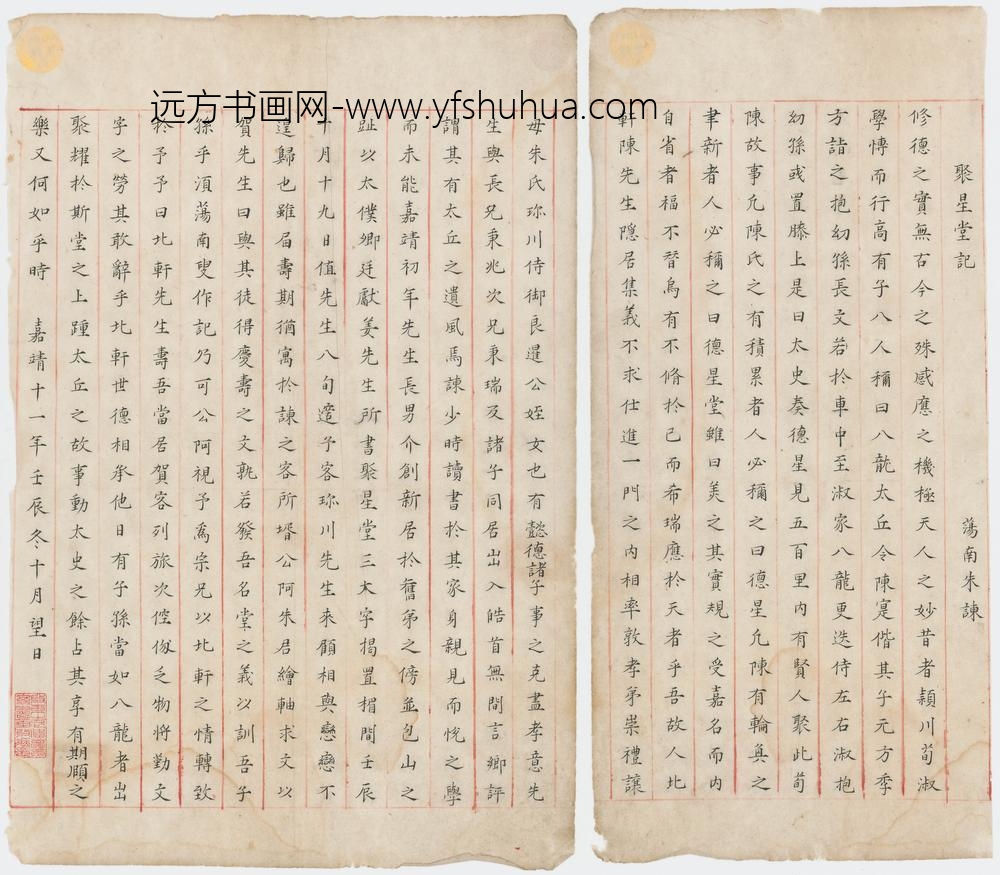 远方书画网-www.yfshuhua.com
聚星堂記
蕩南朱諫
修德之實無古今之殊感應之機極天人之妙昔者潁川荀淑
學愽而行高有子八人稱曰八龍太丘令陳寔偕其子元方季
方詣之抱幼孫長文若於車中至淑家八龍更迭侍左右淑抱
幼孫或置膝上是日太史奏德星見五百里內有賢人聚此荀
陳故事凢陳氏之有積累者人必稱之曰德星凢陳有輪奐之
聿新者人必稱之曰德星堂雖曰羙之其實規之受嘉名而內
自省者福不朁烏有不脩於己而希瑞應於天者乎吾故人北
軒陳先生隱居集義不求仕進一門之內相率敦孝弟崇禮讓
母朱氏珎川侍御良暹公姪女也有懿德諸子事之克盡孝意先
生與長兄秉兆次兄秉瑞及諸子同居出入皓首無間言鄉評
謂其有太丘之遺風焉諫少時讀書於其家身親見而悅之學
而未能嘉靖初年先生長男介創新居於舊第之傍並包山之
趾以太僕卿廷獻姜先生所書聚星堂三大字揭置楣間壬辰
十月十九日值先生八旬遣予客珎川先生來顧相與戀戀不
遑歸也雖届壽期猶寓於諫之客所壻公阿朱君繪軸求文以
賀先生曰與其徒得慶壽之文孰若發吾名堂之義以訓吾子
孫乎湏蕩南叟作記乃可公阿視予爲宗兄以北軒之情轉致
於予予曰北軒先生壽吾當居賀客列旅次倥傯乏物將勤文
字之勞其敢辭乎北軒世德相承他日有子孫當如八龍者出
聚耀於斯堂之上踵太丘之故事動太史之餘占其享有期頤之
樂又何如乎時 嘉靖十一年壬辰冬十月望日